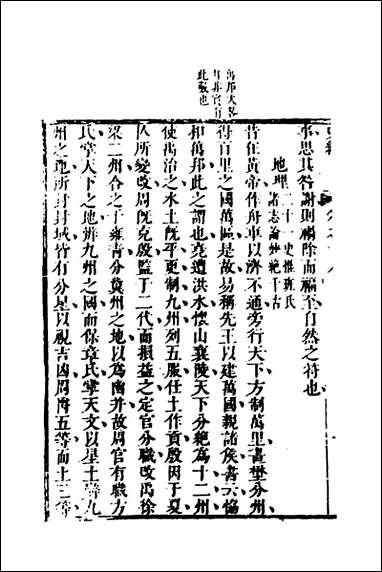 事思其咎謝則禍除而福至自然之符也
地理二十一史惟班氏
諸志論州絶千古
昔在黃帝作舟車以濟不通旁行天下方制萬里畫壄分州
得百里之國萬區是故易稱先王以建萬國親諸侯書云協
和萬邦此之謂也堯遭洪水懷山襄陵天下分絶爲十二州
使禹治之水土旣平更制九州列五服任土作貢殷因于夏
亾所變改周旣克殷監于二代而損益之定官分職改禹徐
梁二州合之于雍青分冀州之地以爲幽并故周官有職方
氏掌天下之地辨九州之國而保章氏掌天文以星土辨九
州之地所封封域皆有分星以視吉凶周爵五等而土三等